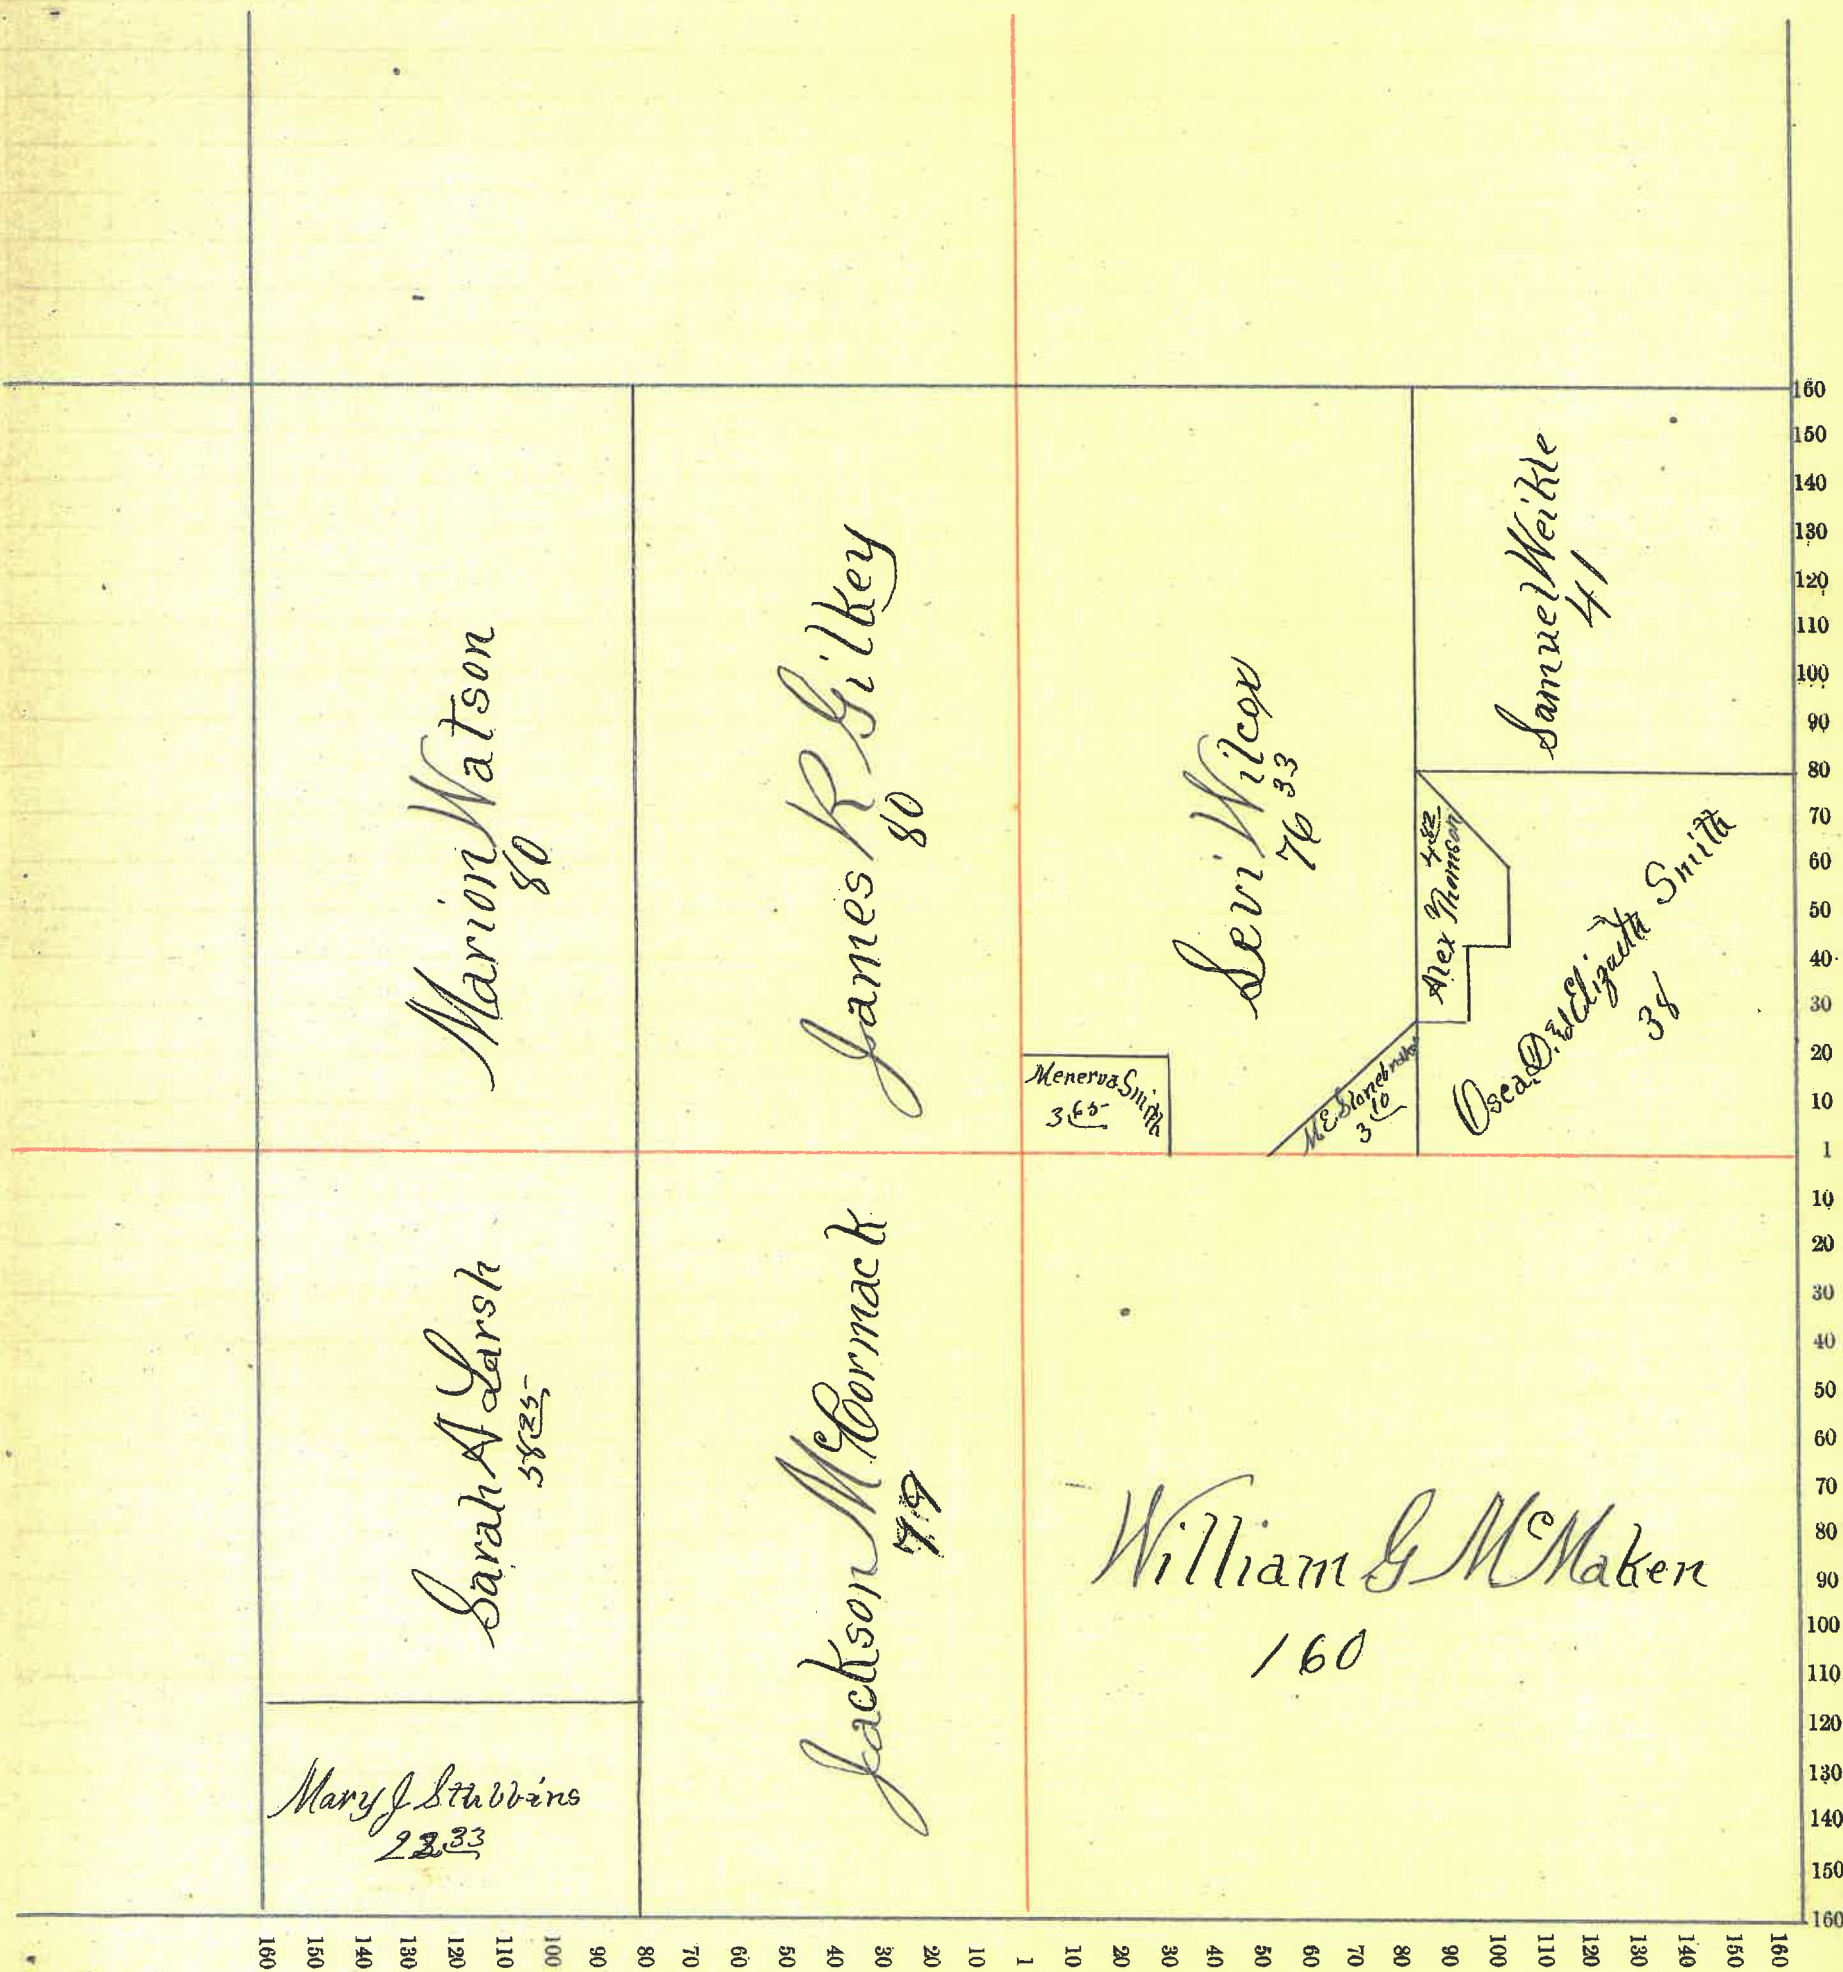 Marion Watson
80
James R Gilkey
80
Levi Wilcox
76 33
Samuel Weikle
41
Alex Thomson
4 82
Menerva Smith
3.65
M E Stonebraker
3 10
Oscar D. & Elizabeth Smith
38
Sarah A Larsh
58 25
Jackson McCormack
79
William G McMaken
160
Mary J Stubbins
22.33
160
150
140
130
120
110
100
90
80
70
60
50
40
30
20
10
1
10
20
30
40
50
60
70
80
90
100
110
120
130
140
150
160
160 150 140 130 120 110 100 90 80 70 60 50 40 30 20 10 1 10 20 30 40 50 60 70 80 90 100 110 120 130 140 150 160